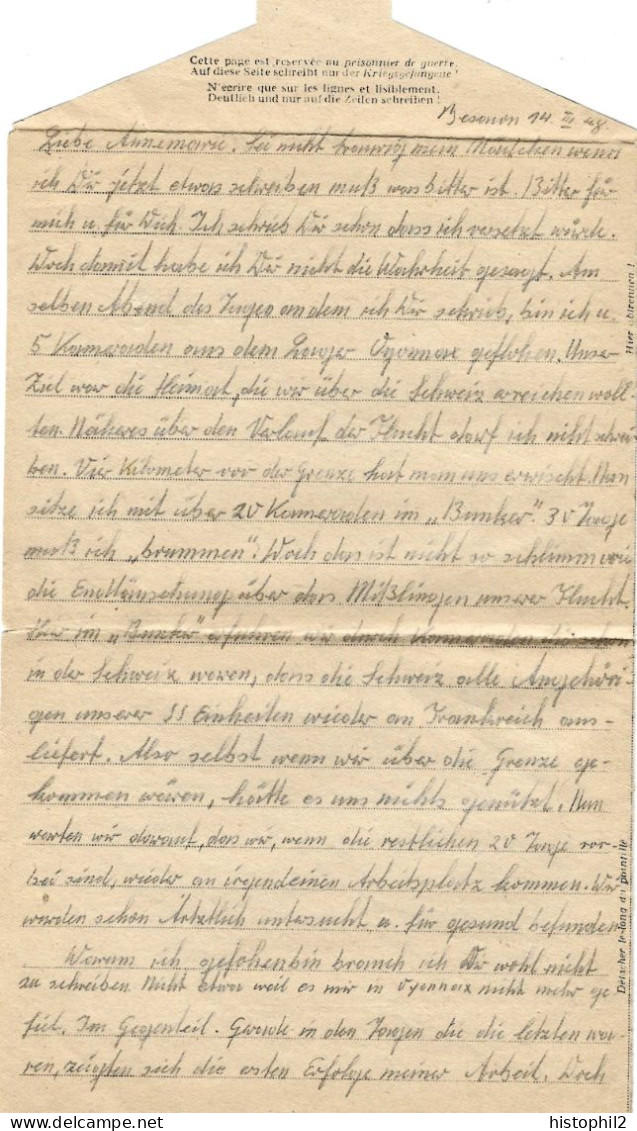 Cette page est reservée au prisonnier de guerre.
Auf diese Seite schreibt nur der Kriegsgefangene!
N'écrire que sur les lignes et lisiblement.
Deutlich und nur auf die Zeilen schreiben!
14. III. 48.
Liebe Annemarie. Sei nicht traurig mein Mädchen wenn
ich Dir jetzt etwas schreiben muß was bitter ist. Bitter für
mich u. für Dich. Ich schrieb Dir schon dass ich versetzt würde.
Doch damit habe ich Dir nicht die Wahrheit gesagt. Am
selben Abend des Tages an dem ich Dir schrieb, bin ich u.
5 Kameraden aus dem Lager Oyonnax geflohen. Unser
Ziel war die Heimat, die wir über die Schweiz erreichen woll-
ten. Näheres über den Verlauf der Flucht darf ich nicht schrei-
ben. Vier Kilometer vor der Grenze hat man uns erwischt. Nun
sitze ich mit über 20 Kameraden im „Bunker". 30 Tage
muß ich „brummen". Doch das ist nicht so schlimm wie
die Enttäuschung über das Mißlingen unserer Flucht.
Hier im „Bunker" erfuhren wir durch Kameraden die schon
in der Schweiz waren, dass die Schweiz alle Angehöri-
gen unserer SS Einheiten wieder an Frankreich aus-
liefert. Also selbst wenn wir über die Grenze ge-
kommen wären, hätte es uns nichts genützt. Nun
warten wir darauf, das wir, wenn die restlichen 20 Tage vor-
bei sind, wieder an irgendeinen Arbeitsplatz kommen. Wir
wurden schon Ärtztlich untersucht u. für gesund befunden
Warum ich geflohen bin brauch ich Dir wohl nicht
zu schreiben. Nicht etwa weil es mir in Oyonnax nicht mehr ge-
fiel. Im Gegenteil. Gerade in den Tagen die die letzten wa-
ren, zeigten sich die ersten Erfolge meiner Arbeit. Doch
Hier abtrennen!
Détacher le long du pointillé
histophil2